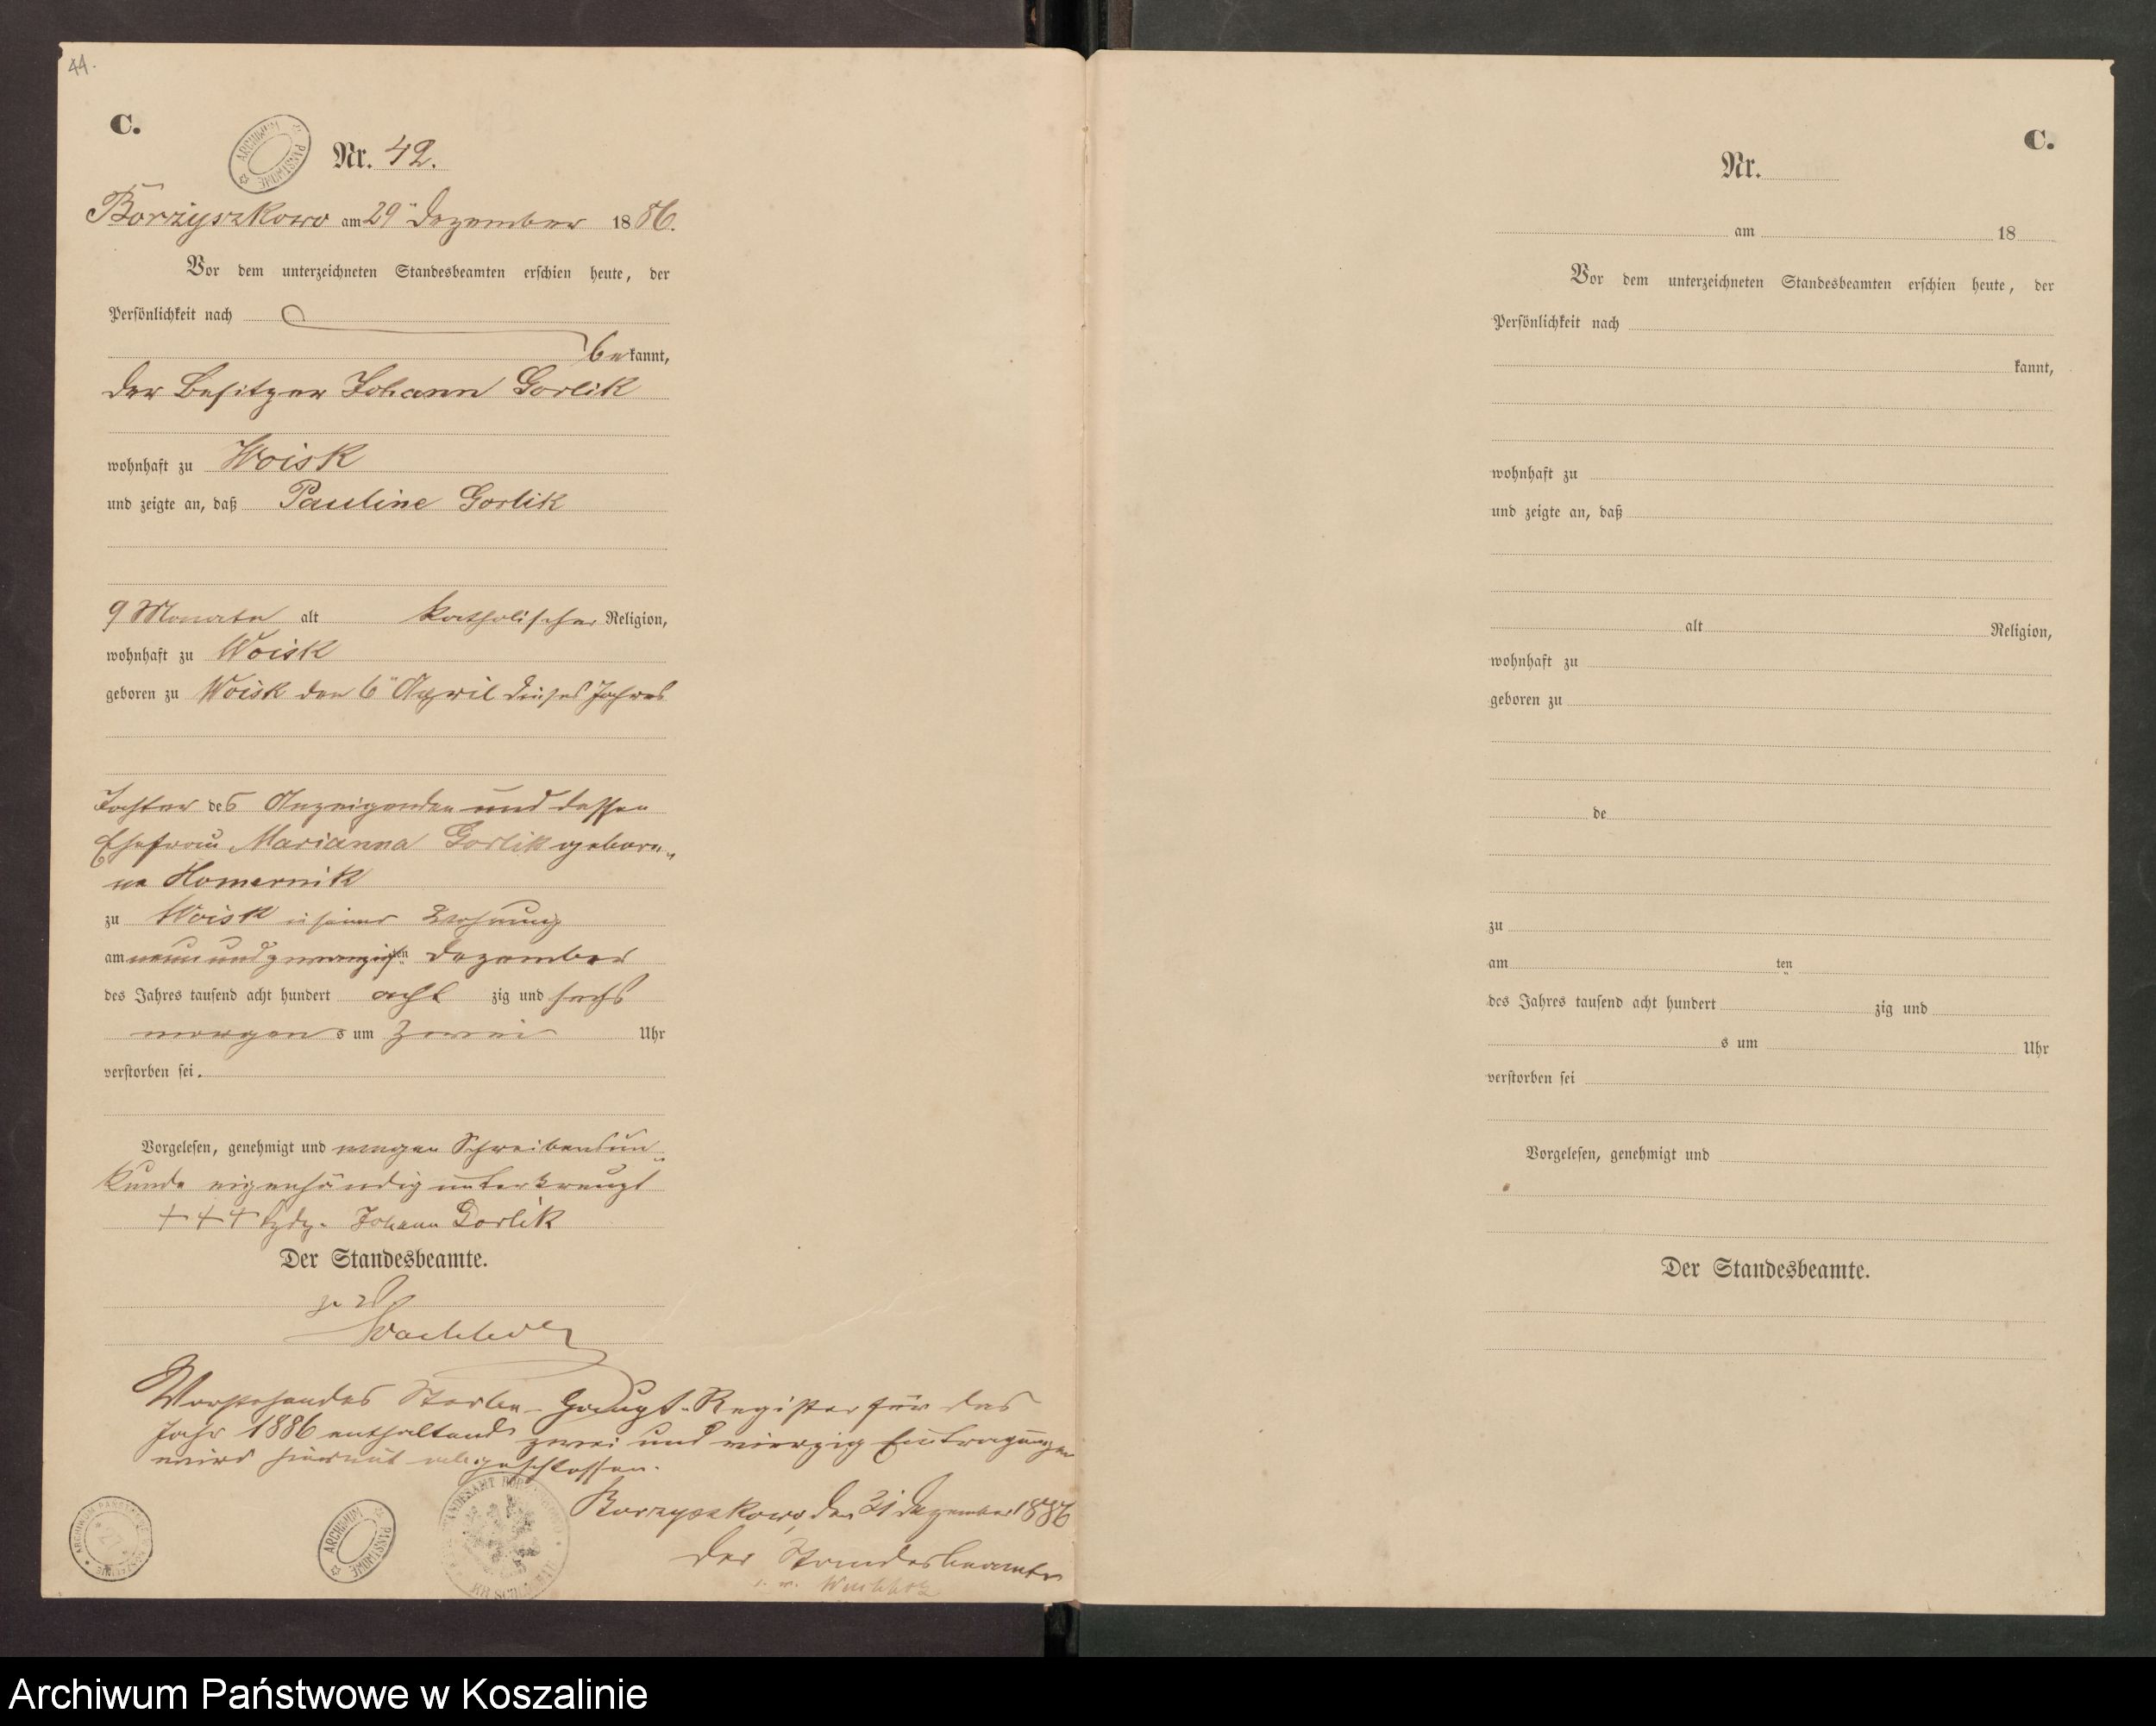 44.
C.
ARCHIWUM PAŃSTWOWE
Nr. 42.
Borzyszkowo am 29" Dezember 1886.
Vor dem unterzeichneten Standesbeamten erschien heute, der
Persönlichkeit nach
bekannt,
der Besitzer Johann Gorlik
wohnhaft zu Woisk
und zeigte an, daß Pauline Gorlik
9 Monate alt katholischer Religion,
wohnhaft zu Woisk
geboren zu Woisk den 6" April dieses Jahres
Tochter des Anzeigenden und dessen
Ehefrau Marianna Gorlik gebore„
ne Homernik
zu Woisk in seiner Wohnung
am neun und zwanzigsten Dezember
des Jahres tausend acht hundert acht zig und sechs
morgens um zwei Uhr
verstorben sei.
Vorgelesen, genehmigt und wegen Schreibensun„
kunde eigenhändig unterkreuzt
+++ Hdz. Johann Gorlik
Der Standesbeamte.
Wachholz
Vorstehendes Sterbe-Haupt-Register für das
Jahr 1886 enthaltend zwei und vierzig Eintragungen
wird hiermit abgeschlossen.
Borzyszkowo, den 31 Dezember 1886
Der Standesbeamte
i. v. Wachholz
ARCHIWUM PAŃSTWOWE
C.
Nr.
am 18
Vor dem unterzeichneten Standesbeamten erschien heute, der
Persönlichkeit nach
kannt,
wohnhaft zu
und zeigte an, daß
alt Religion,
wohnhaft zu
geboren zu
de
zu
am ten
des Jahres tausend acht hundert zig und
s um Uhr
verstorben sei
Vorgelesen, genehmigt und
Der Standesbeamte.
Archiwum Państwowe w Koszalinie